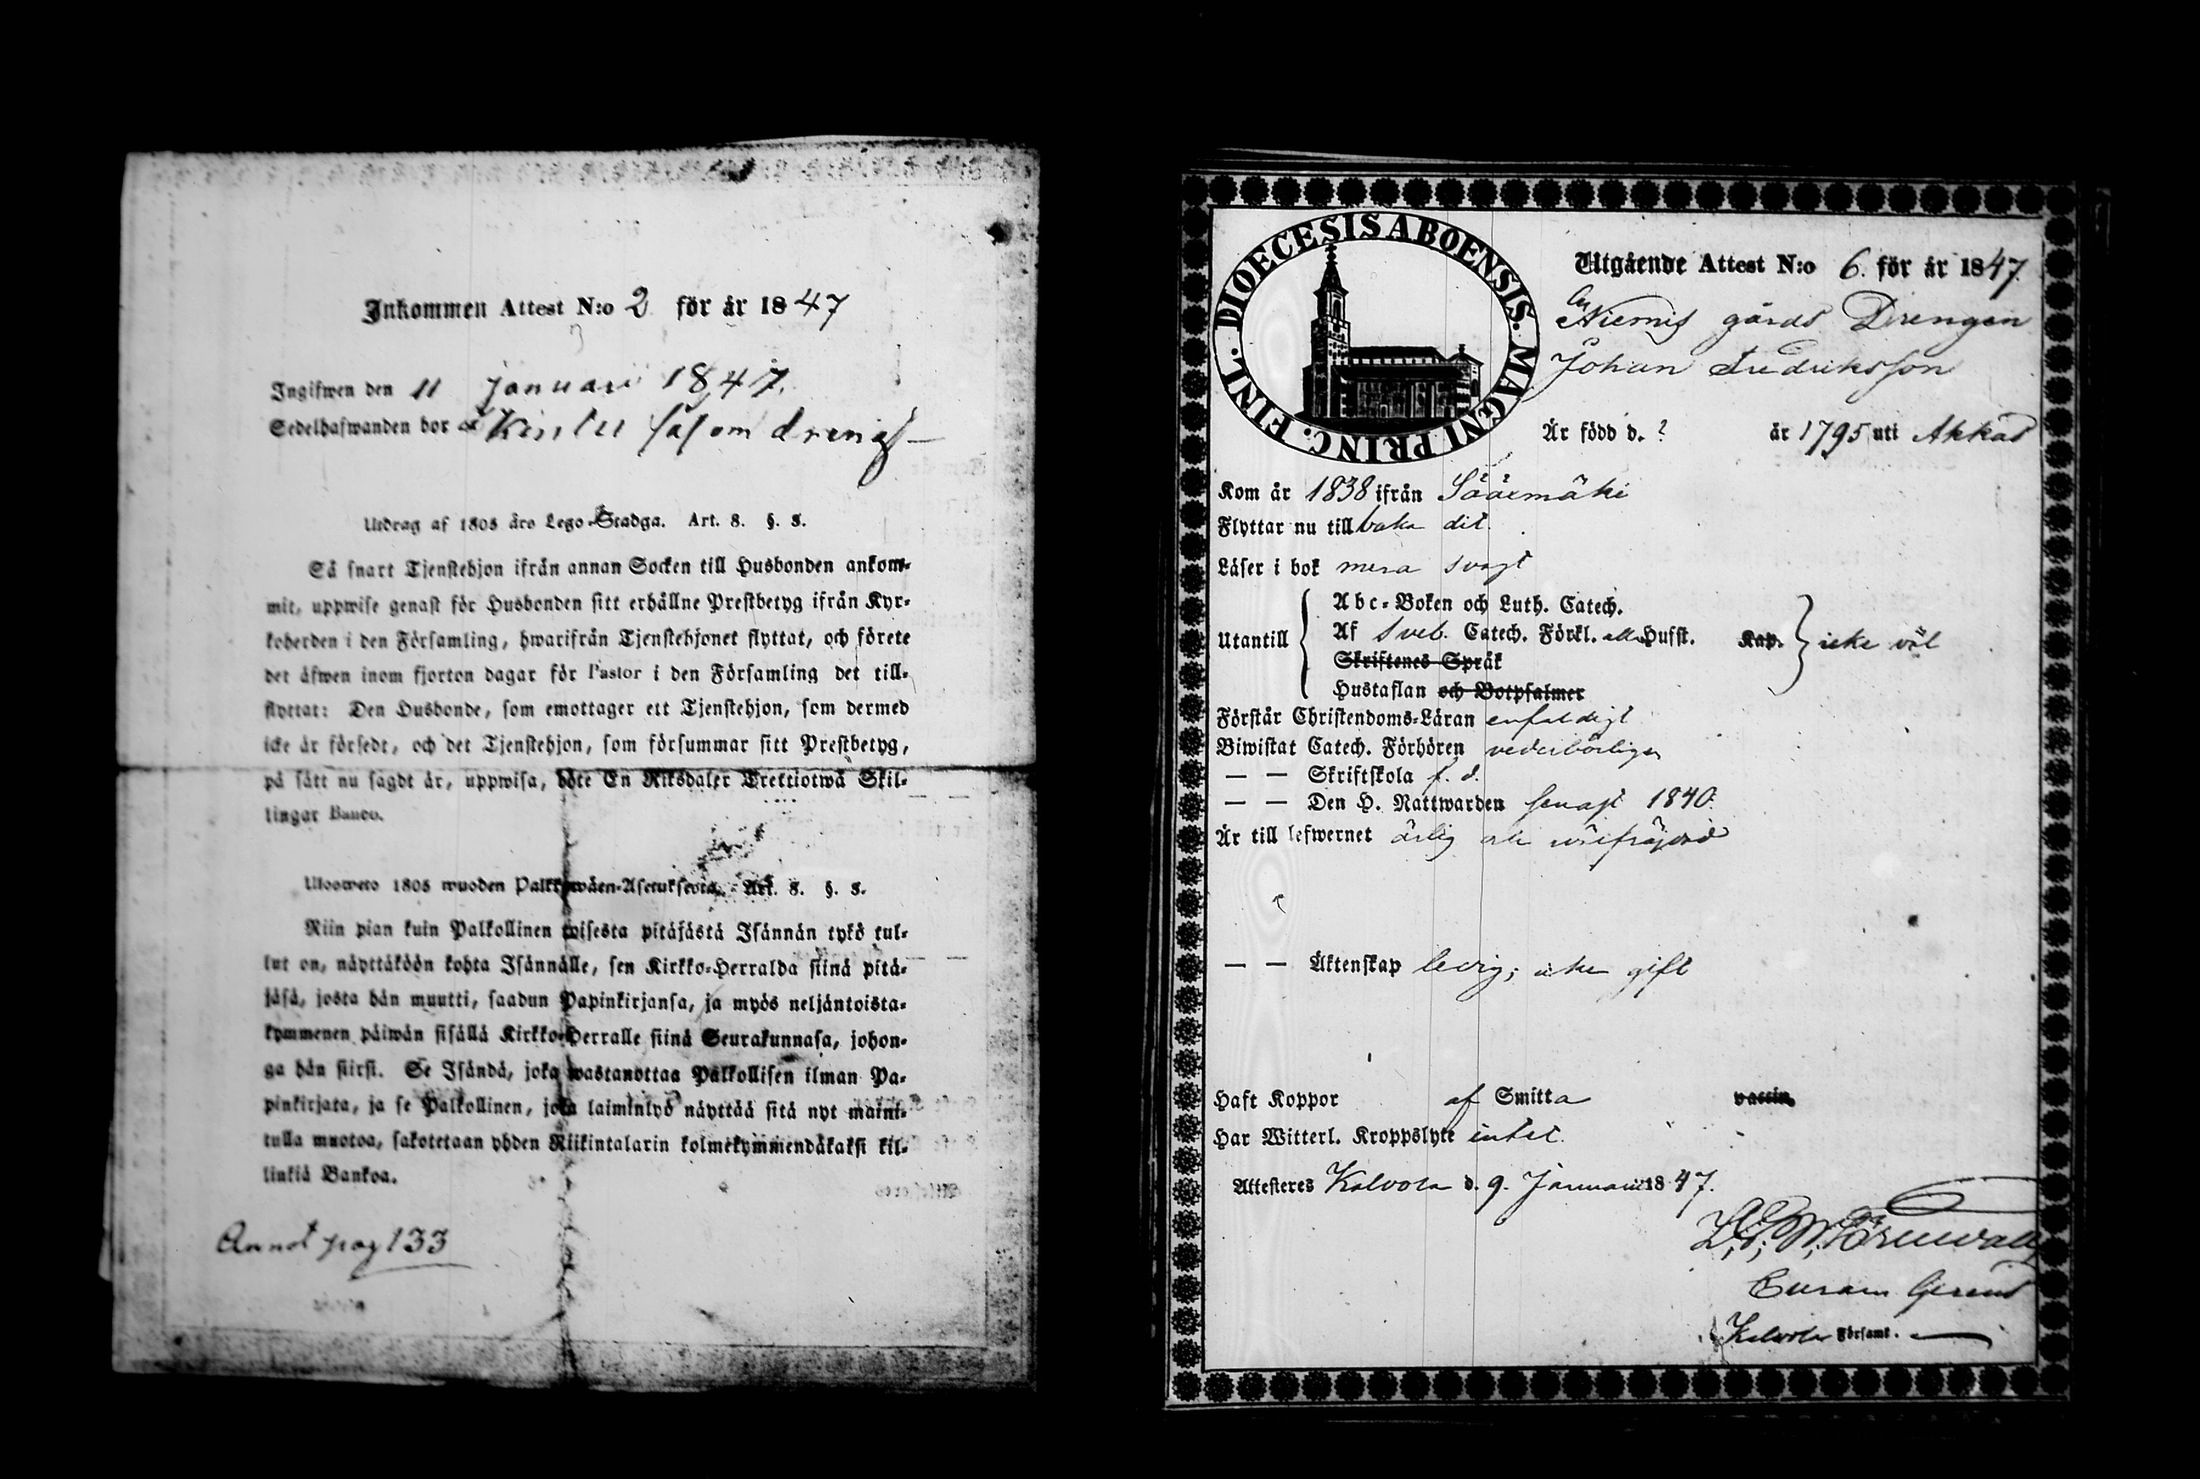 Inkommen Attest N:o 2 för år 1847
Ingifwen den 11 januari 1847.
Sedelhafwanden bor å
Utdrag af 1805 års Lego-Stadga. Art. 8. §. 3.
Så snart Tjenstehjon ifrån annan Socken till Husbonden ankom-
mit, uppwise genast för Husbonden sitt erhållne Prestbetyg ifrån Kyr-
koherden i den Församling, hwarifrån Tjenstehjonet flyttat, och förete
det äfwen inom fjorton dagar för Pastor i den Församling det till-
flyttat: Den Husbonde, som emottager ett Tjenstehjon, som dermed
icke är försedt, och det Tjenstehjon, som försummar sitt Prestbetyg,
på sätt nu sagdt är, uppwisa, böte En Riksdaler Trettiotwå Skil-
lingar Banco.
Ulosweto 1805 wuoden Palkkawäen-Asetuksesta. Art. 8. §. 3.
Niin pian kuin Palkollinen toisesta pitäjästä Isännän tykö tul-
lut on, näyttäköön kohta Isännälle, sen Kirkko-Herralda siinä pitä-
jäsä, josta hän muutti, saadun Papinkirjansa, ja myös neljäntoista-
kymmenen päiwän sisällä Kirkko-Herralle siinä Seurakunnasa, johon-
ga hän siirsi. Se Isändä, joka wastanottaa Palkollisen ilman Pa-
pinkirjata, ja se Palkollinen, joka laiminlyö näyttää sitä nyt maini-
tulla muotoa, sakotetaan yhden Riikintalarin kolmekymmendäkaksi kil-
linkiä Bankoa.
Annot pag 133
DIOECESIS ABOENSIS. MAGNI PRINC. FINL.
Utgående Attest N:o 6. för år 1847.
Niemis gårds Drengen
Johan Fredriksson
Är född d. ? år 1795 uti Akkas
Kom år 1838 ifrån Sääemäki
Flyttar nu tillbaka dit.
Läser i bok mera svagt
Utantill
Abc-Boken och Luth. Catech.
Af Sveb. Catech. Förkl. Husst. Kap.
Skriftenes Språk
Hustaflan och Botpsalmer
icke väl
Förstår Christendoms-Läran enfaldigt
Biwistat Catech. Förhören vederbörligen
— — Skriftskola f. d.
— — Den H. Nattwarden senast 1840.
Är till lefwernet ärlig och välfräjdad
— — Äktenskap ledig; icke gift
Haft Koppor af Smitta vaccin.
Har Witterl. Kroppslyte intet.
Attesteres Kalvola d. 9. Januarii 1847.
Curam Gerens
Kalvola Församl.